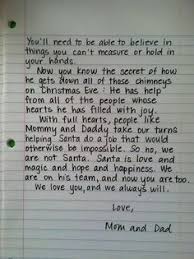 You'll need to be able to believe in
things you can't measure or hold in
your hands.
Now you know the secret of how
he gets down all of those chimneys
on Christmas Eve: He has help
from all of the people whose
hearts he has filled with joy.
With full hearts, people like
Mommy and Daddy take our turns
helping Santa do a job that would
otherwise be impossible. So no, we
are not Santa. Santa is love and
magic and hope and happiness. We
are on his team, and now you are too.
We love you, and we always will.
Love,
Mom and Dad